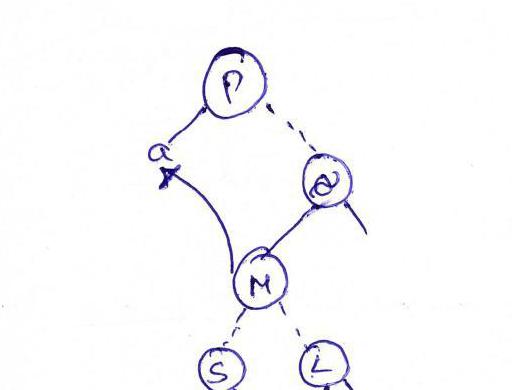 P
a
a
M
S
L